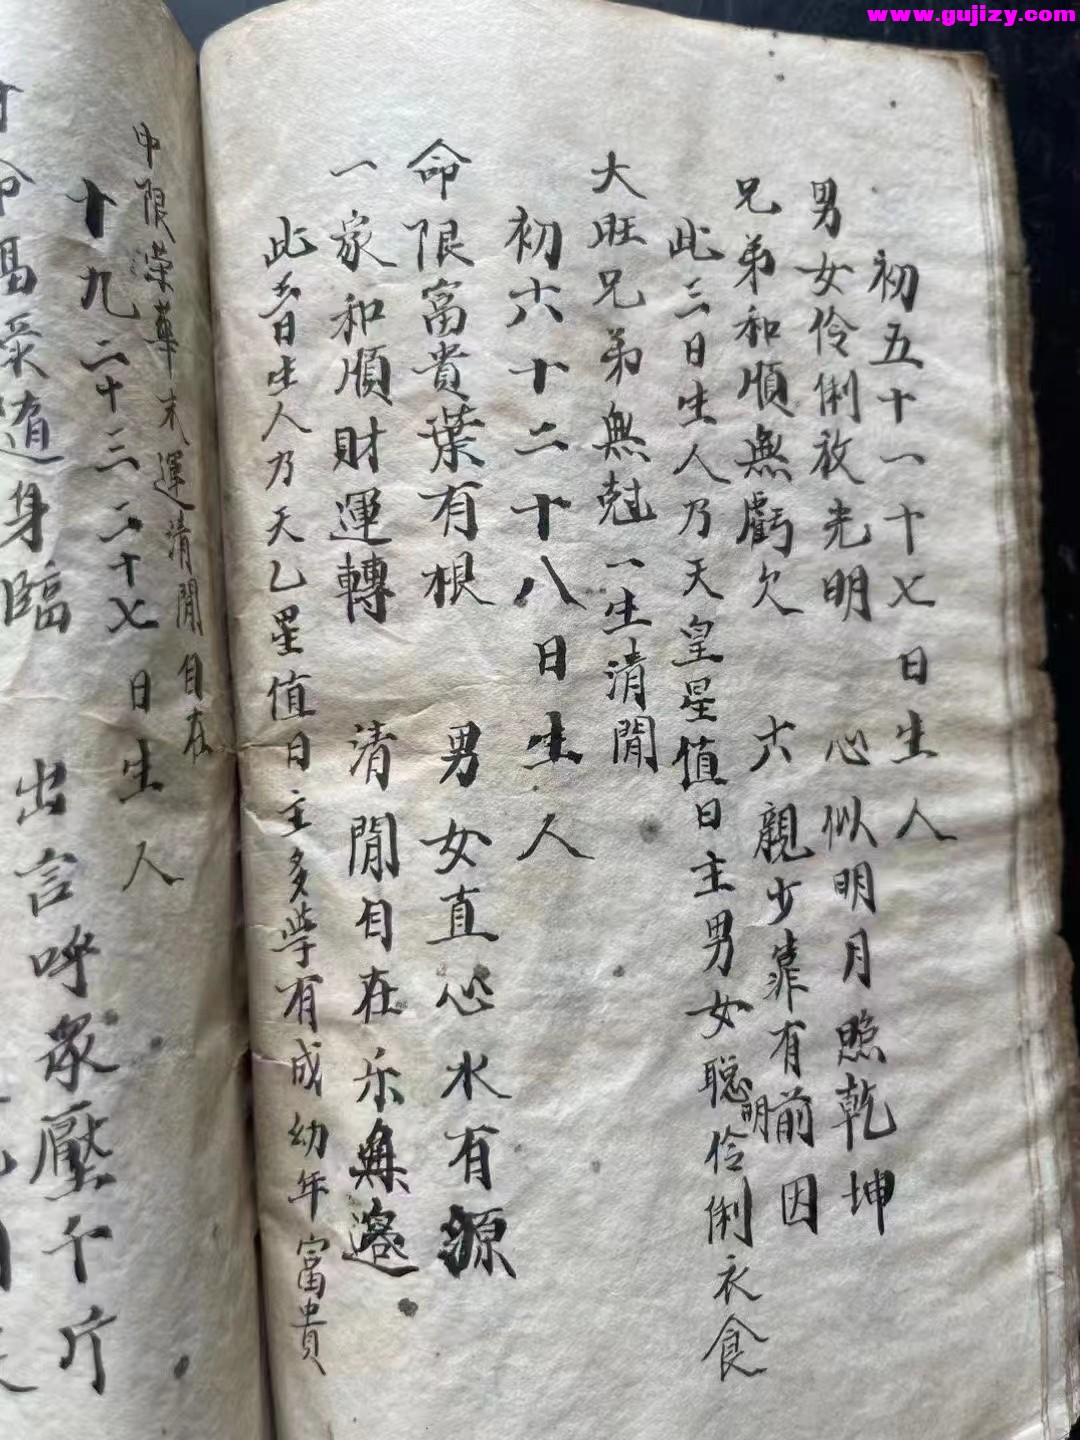 www.gujizy.com
初五十一十七日生人
男女伶俐放光明 心似明月照乾坤
兄弟和順無虧欠 六親少靠有前因
此三日生人乃天皇星值日主男女聪明伶俐衣食
大旺兄弟無尅一生清閒
初六十二十八日生人
命限富貴葉有根 男女直心水有源
一家和順財運轉 清閒自在乐無邊
此日生人乃天乙星值日主多学有成幼年富貴
中限荣華末運清閒自在
十九二十三二十七日生人
命高受随身臨 出言呼眾壓千斤